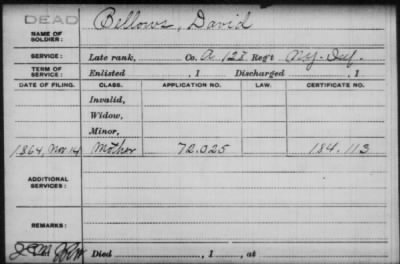 DEAD
NAME OF SOLDIER: Bellows, David
SERVICE: Late rank, Co. A 121 Reg't N.Y. Inf.
TERM OF SERVICE: Enlisted , 1 Discharged , 1
DATE OF FILING. CLASS. APPLICATION NO. LAW. CERTIFICATE NO.
Invalid,
Widow,
Minor,
1864, Nov. 14 Mother 72.025 184.113
ADDITIONAL SERVICES:
REMARKS:
Died , 1 , at